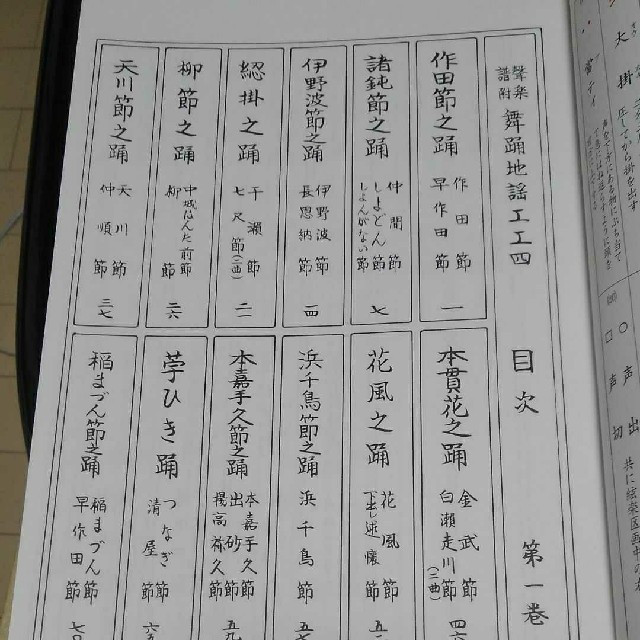 聲楽譜附 舞踊地謡工工四 目次 第一巻
作田節之踊
作田節
早作田節
一
諸鈍節之踊
仲間節
しよどん節
しよんがない節
七
伊野波節之踊
伊野波節
長恩納節
一四
綛掛之踊
干瀬節
七尺節(二曲)
二一
柳節之踊
中城はんた前節
柳節
二六
天川節之踊
天川節
仲順節
三七
本貫花之踊
金武節
白瀬走川節(二曲)
四六
花風之踊
花風節
下出し述懐節
浜千鳥節之踊
浜千鳥節
本嘉手久節之踊
本嘉手久節
出砂節
揚高祢久節
苧ひき踊
つなぎ節
清屋節
稲まづん節之踊
稲まづん節
早作田節